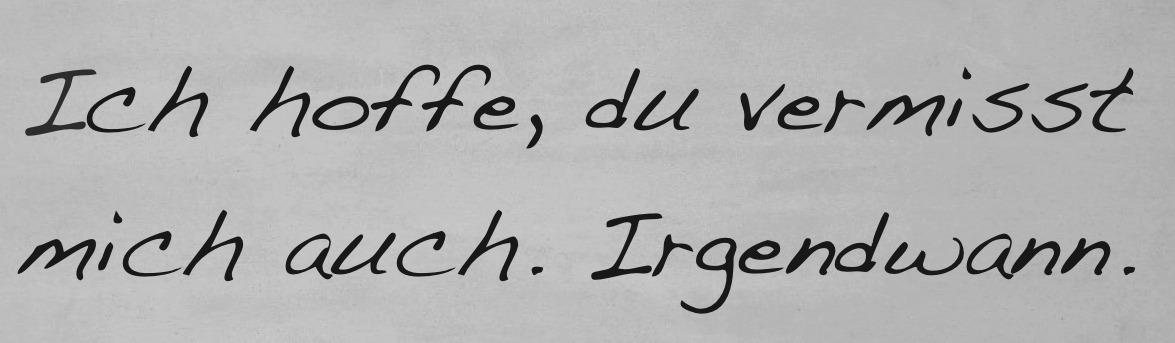 Ich hoffe, du vermisst
mich auch. Irgendwann.